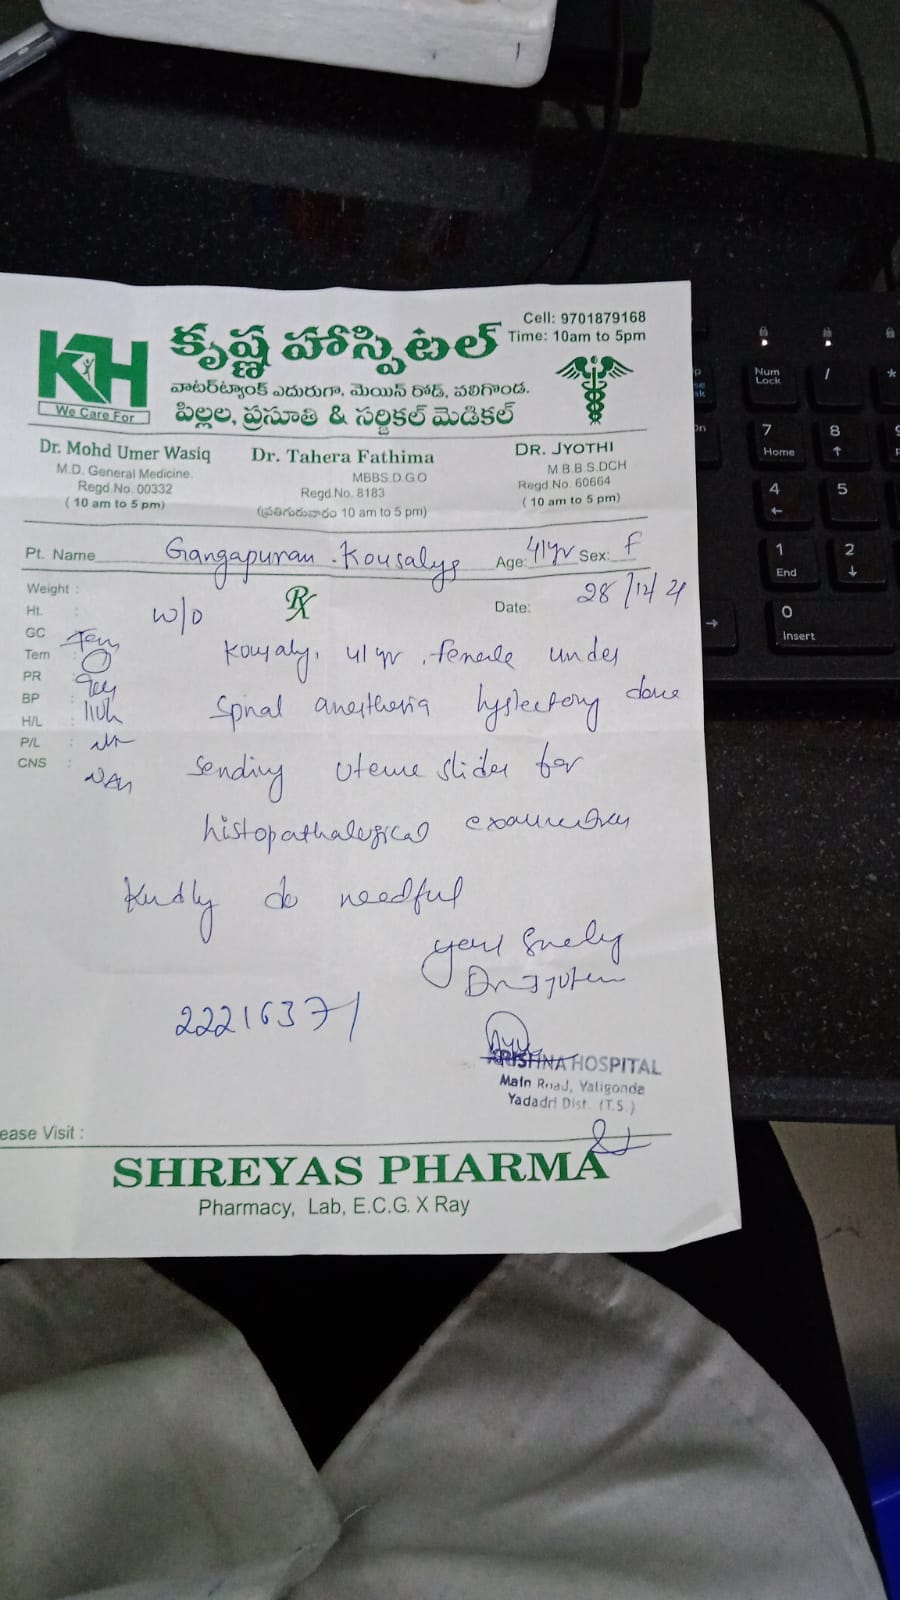 Cell: 9701879168
కృష్ణ హాస్పిటల్
Time: 10am to 5pm
KH
We Care For
వాటర్‌ట్యాంక్ ఎదురుగా, మెయిన్ రోడ్, వలిగొండ.
పిల్లల, ప్రసూతి & సర్జికల్ మెడికల్
Dr. Mohd Umer Wasiq
M.D. General Medicine.
Regd.No. 00332
( 10 am to 5 pm)
Dr. Tahera Fathima
MBBS.D.G.O
Regd.No. 8183
(ప్రతిగురువారం 10 am to 5 pm)
DR. JYOTHI
M.B.B.S.DCH
Regd.No. 60664
( 10 am to 5 pm)
Pt. Name Gangapuram . Kousalya Age: 41yr Sex: F
Weight :
Ht. :
Date: 28/12/21
GC :
Tem :
PR :
BP :
H/L :
P/L :
CNS : NAD
W/O
Rx
Kousaly, 41 yr, female under
spinal anesthesia done
sending for
histopathalogical
Kindly do needful
22216371
KRISHNA HOSPITAL
Main Road, Valigonda
Yadadri Dist. (T.S.)
ease Visit :
SHREYAS PHARMA
Pharmacy, Lab, E.C.G. X Ray
Num Lock
/
*
7 Home
8
4
5
1 End
2
0 Insert